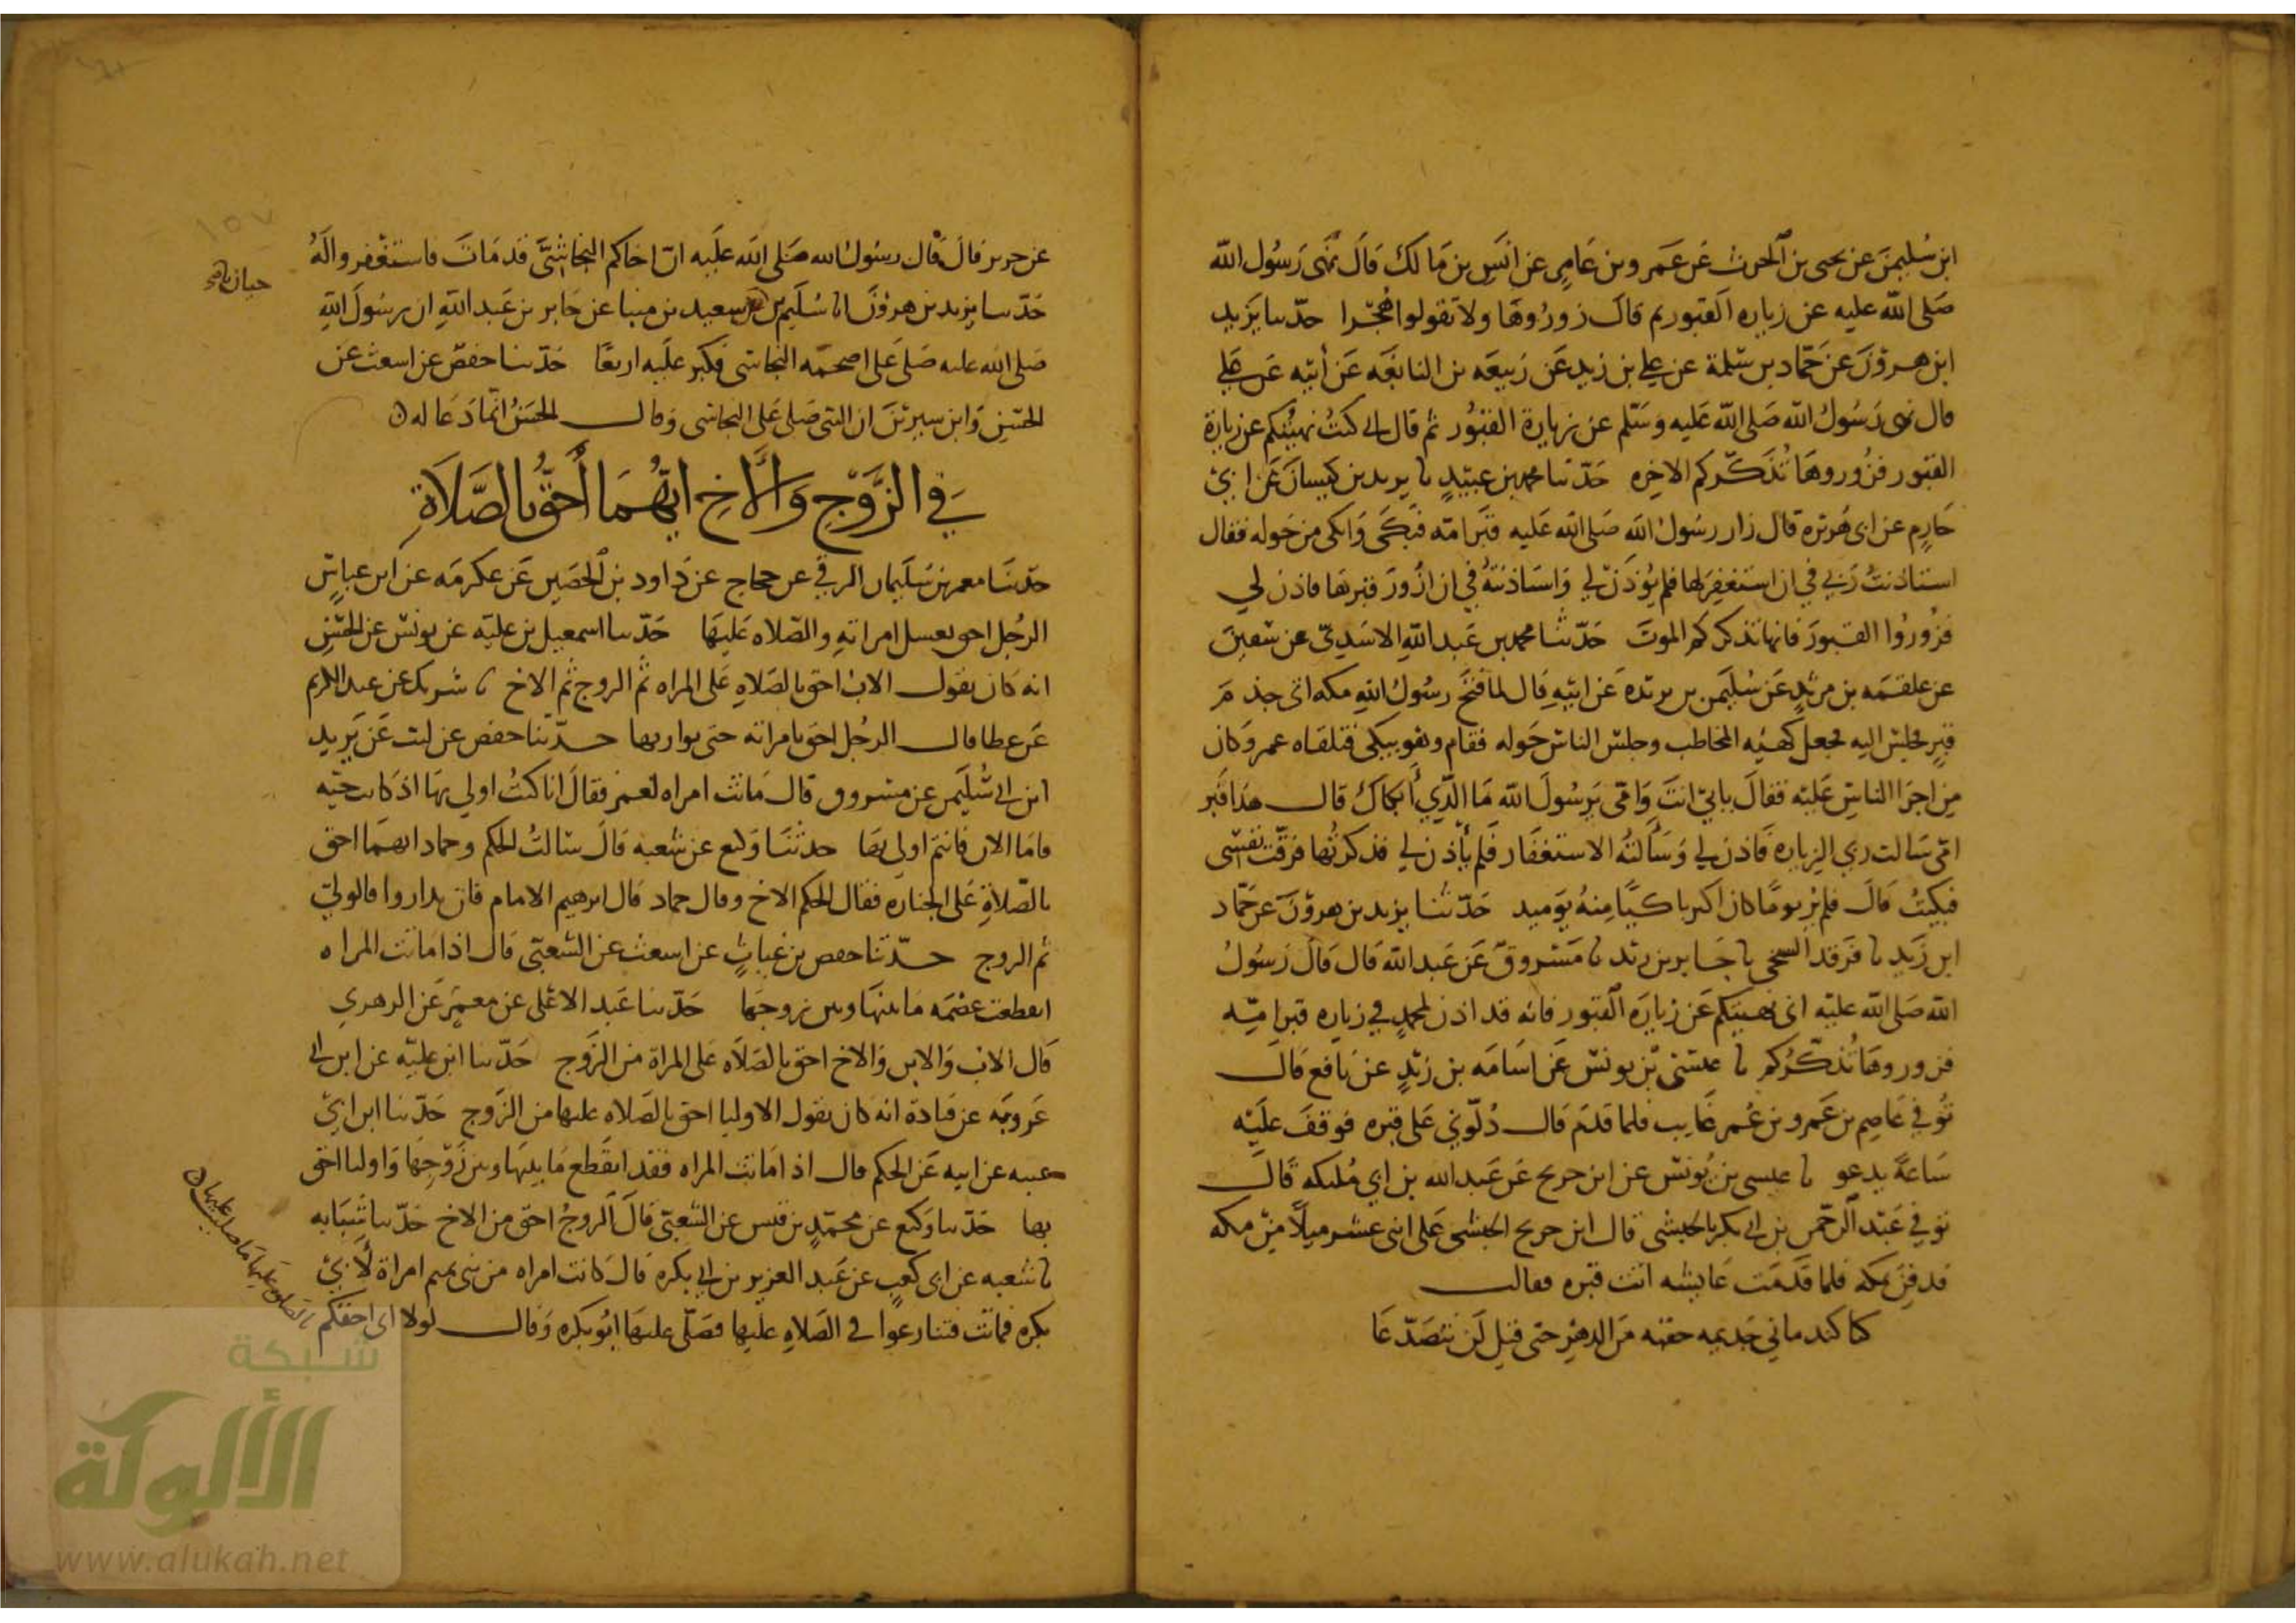 ابن سُليمن عن يحيى بن الحرث عن عمرو بن عامر عن انس بن مالك قال نهى رسول الله
صلى الله عليه عن زياره القبور ثم قال زوروها ولا تقولوا هُجرا حدثنا يزيد
ابن هرون عن حماد بن سلمة عن علي بن زيد عن ربيعه بن النابغه عن أبيه عن علي
قال نهى رسول الله صلى الله عليه وسلم عن زيارة القبور ثم قال اني كنت نهيتكم عن زيارة
القبور فزوروها تذكركم الاخره حدثنا محمد بن عبيد نا يزيد بن كيسان عن ابي
حازم عن ابي هريرة قال زار رسول الله صلى الله عليه قبر امه فبكى وابكى من حوله فقال
استاذنت ربي في ان استغفر لها فلم يؤذن لي واستاذنته في ان ازور قبرها فاذن لي
فزوروا القبور فانها تذكركم الموت حدثنا محمد بن عبد الله الاسدي عن سفين
عن علقمه بن مرثد عن سليمن بن بريدة عن ابيه قال لما فتح رسول الله مكه اتى جذم
قبر فجلس اليه فجعل كهيئه المخاطب وجلس الناس حوله فقام وهو يبكي فتلقاه عمر وكان
من اجرا الناس عليه فقال بابي انت وامي يرسول الله ما الذي أبكاك قال هذا قبر
امي سالت ربي الزياره فاذن لي وسألته الاستغفار فلم يأذن لي فذكرتها فرقت نفسي
فبكيت قال فلم ير يوما كان اكثر باكيا منه يوميد حدثنا يزيد بن هرون عن حماد
ابن زيد نا فرقد السبخي نا جابر بن زيد نا مسروق عن عبد الله قال قال رسول
الله صلى الله عليه اني نهيتكم عن زيارة القبور فانه قد اذن لمحمد في زياره قبر امه
فزوروها تذكركم نا عيسى بن يونس عن اسامه بن زيد عن نافع قال
توفي عاصم بن عمر وبن عمر غايب فلما قدم قال دلوني على قبره فوقف عليه
ساعة يدعو نا عيسى بن يونس عن ابن جريج عن عبد الله بن ابي مليكه قال
توفي عبد الرحمن بن ابي بكر بالحبشي قال ابن جريج الحبشي على اثنى عشر ميلا من مكه
فدفن بمكه فلما قدمت عايشه اتت قبره فقالت
كنا كندماني جذيمه حقبه من الدهر حتى قيل لن نتصدعا
عن جرير قال قال رسول الله صلى الله عليه ان اخاكم النجاشي قد مات فاستغفروا له
حدثنا يزيد بن هرون انا سليم بن سعيد بن مينا عن جابر بن عبد الله ان رسول الله
حيان صح
صلى الله عليه صلى على اصحمه النجاشي فكبر عليه اربعا حدثنا حفص عن اشعث عن
الحسن وابن سيرين ان النبي صلى على النجاشي وقال الحسن انما دعا له
في الزوج والأخ ايهما أحق بالصلاة
حدثنا معمر بن سليمان الرقي عن حجاج عن داود بن الحصين عن عكرمه عن ابن عباس
الرجل احق بغسل امراته والصلاه عليها حدثنا اسمعيل بن عليه عن يونس عن الحسن
انه كان يقول الاب احق بالصلاه على المراه ثم الزوج ثم الاخ نا شريك عن عبد الكريم
عن عطا قال الرجل احق بامراته حتى يواريها حدثنا حفص عن ليث عن يزيد
ابن ابي سليمن عن مسروق قال ماتت امراه لعمر فقال انا كنت اولي بها اذ كانت حيه
فاما الان فانتم اولي بها حدثنا وكيع عن شعبه قال سالت الحكم وحماد ايهما احق
بالصلاة على الجنازه فقال الحكم الاخ وقال حماد قال ابرهيم الامام فان تداروا فالولي
ثم الزوج حدثنا حفص بن غياث عن اشعث عن الشعبي قال اذا ماتت المراه
انقطعت عصمه ما بينها وبين زوجها حدثنا عبد الاعلى عن معمر عن الزهري
قال الاب والابن والاخ احق بالصلاه على المراة من الزوج حدثنا ابن عليه عن ابن ابي
عروبه عن قتادة انه كان يقول الاوليا احق بالصلاه عليها من الزوج حدثنا ابن ابي
غنيه عن ابيه عن الحكم قال اذا ماتت المراه فقد انقطع ما بينها وبين زوجها واوليا احق
بها حدثنا وكيع عن محمد بن قيس عن الشعبي قال الزوج احق من الاخ حدثنا شبابه
نا شعبه عن ابي كعب عن عبد العزيز بن ابي بكره قال كانت امراه من بني تميم امراة لأبي
بكره فماتت فتنازعوا في الصلاه عليها فصلى عليها ابو بكره وقال لولا اني احقكم
بالصلوه عليها ما صليت عليها
شبكة
الألوكة
www.alukah.net